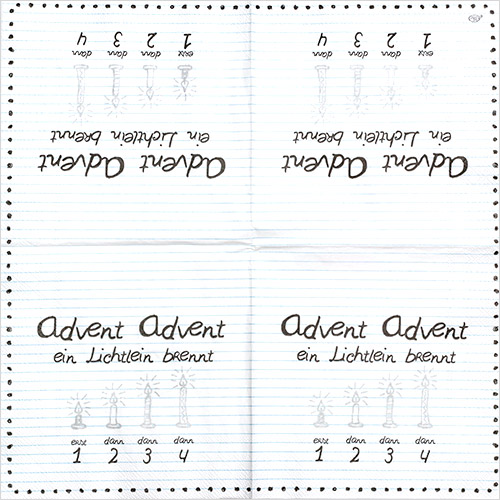 Advent Advent
ein Lichtlein brennt
dann dann dann
1 2 3 4
Advent Advent
ein Lichtlein brennt
dann dann dann
1 2 3 4
Advent Advent
ein Lichtlein brennt
dann dann dann
1 2 3 4
Advent Advent
ein Lichtlein brennt
dann dann dann
1 2 3 4